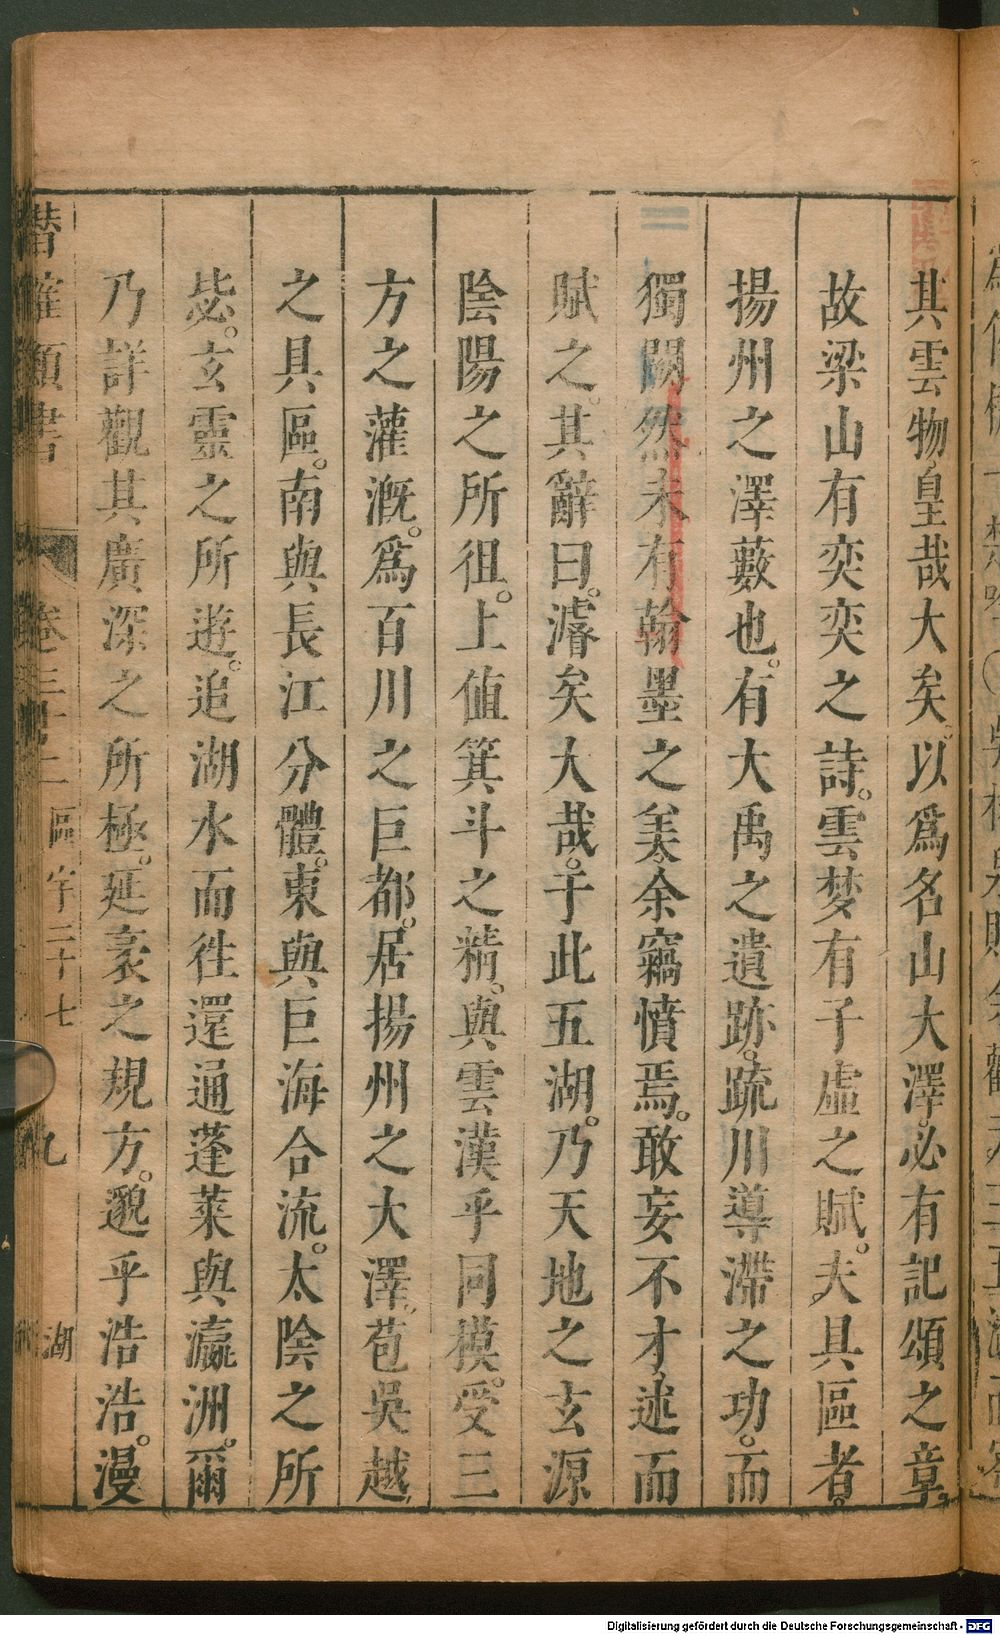 其雲物皇哉大矣。以爲名山大澤。必有記頌之章。
故梁山有奕奕之詩。雲梦有子虛之賦。夫具區者。
揚州之澤藪也。有大禹之遺跡。疏川導滯之功。而
獨闕然未有翰墨之美余竊憤焉。敢妄不才述而
賦之。其辭曰。濬矣大哉。于此五湖。乃天地之玄源
陰陽之所徂。上值箕斗之精。與雲漢乎同模。受三
方之灌溉。爲百川之巨都。居揚州之大澤。苞吳越
之具區。南與長江分體。東與巨海合流。太陰之所
毖。玄靈之所遊。追湖水而往還通蓬萊與瀛洲。爾
乃詳觀其廣深之所極。延袤之規方。邈乎浩浩。漫
潛確類書 卷三十二 區宇二十七 湖 九
Digitalisierung gefördert durch die Deutsche Forschungsgemeinschaft - DFG